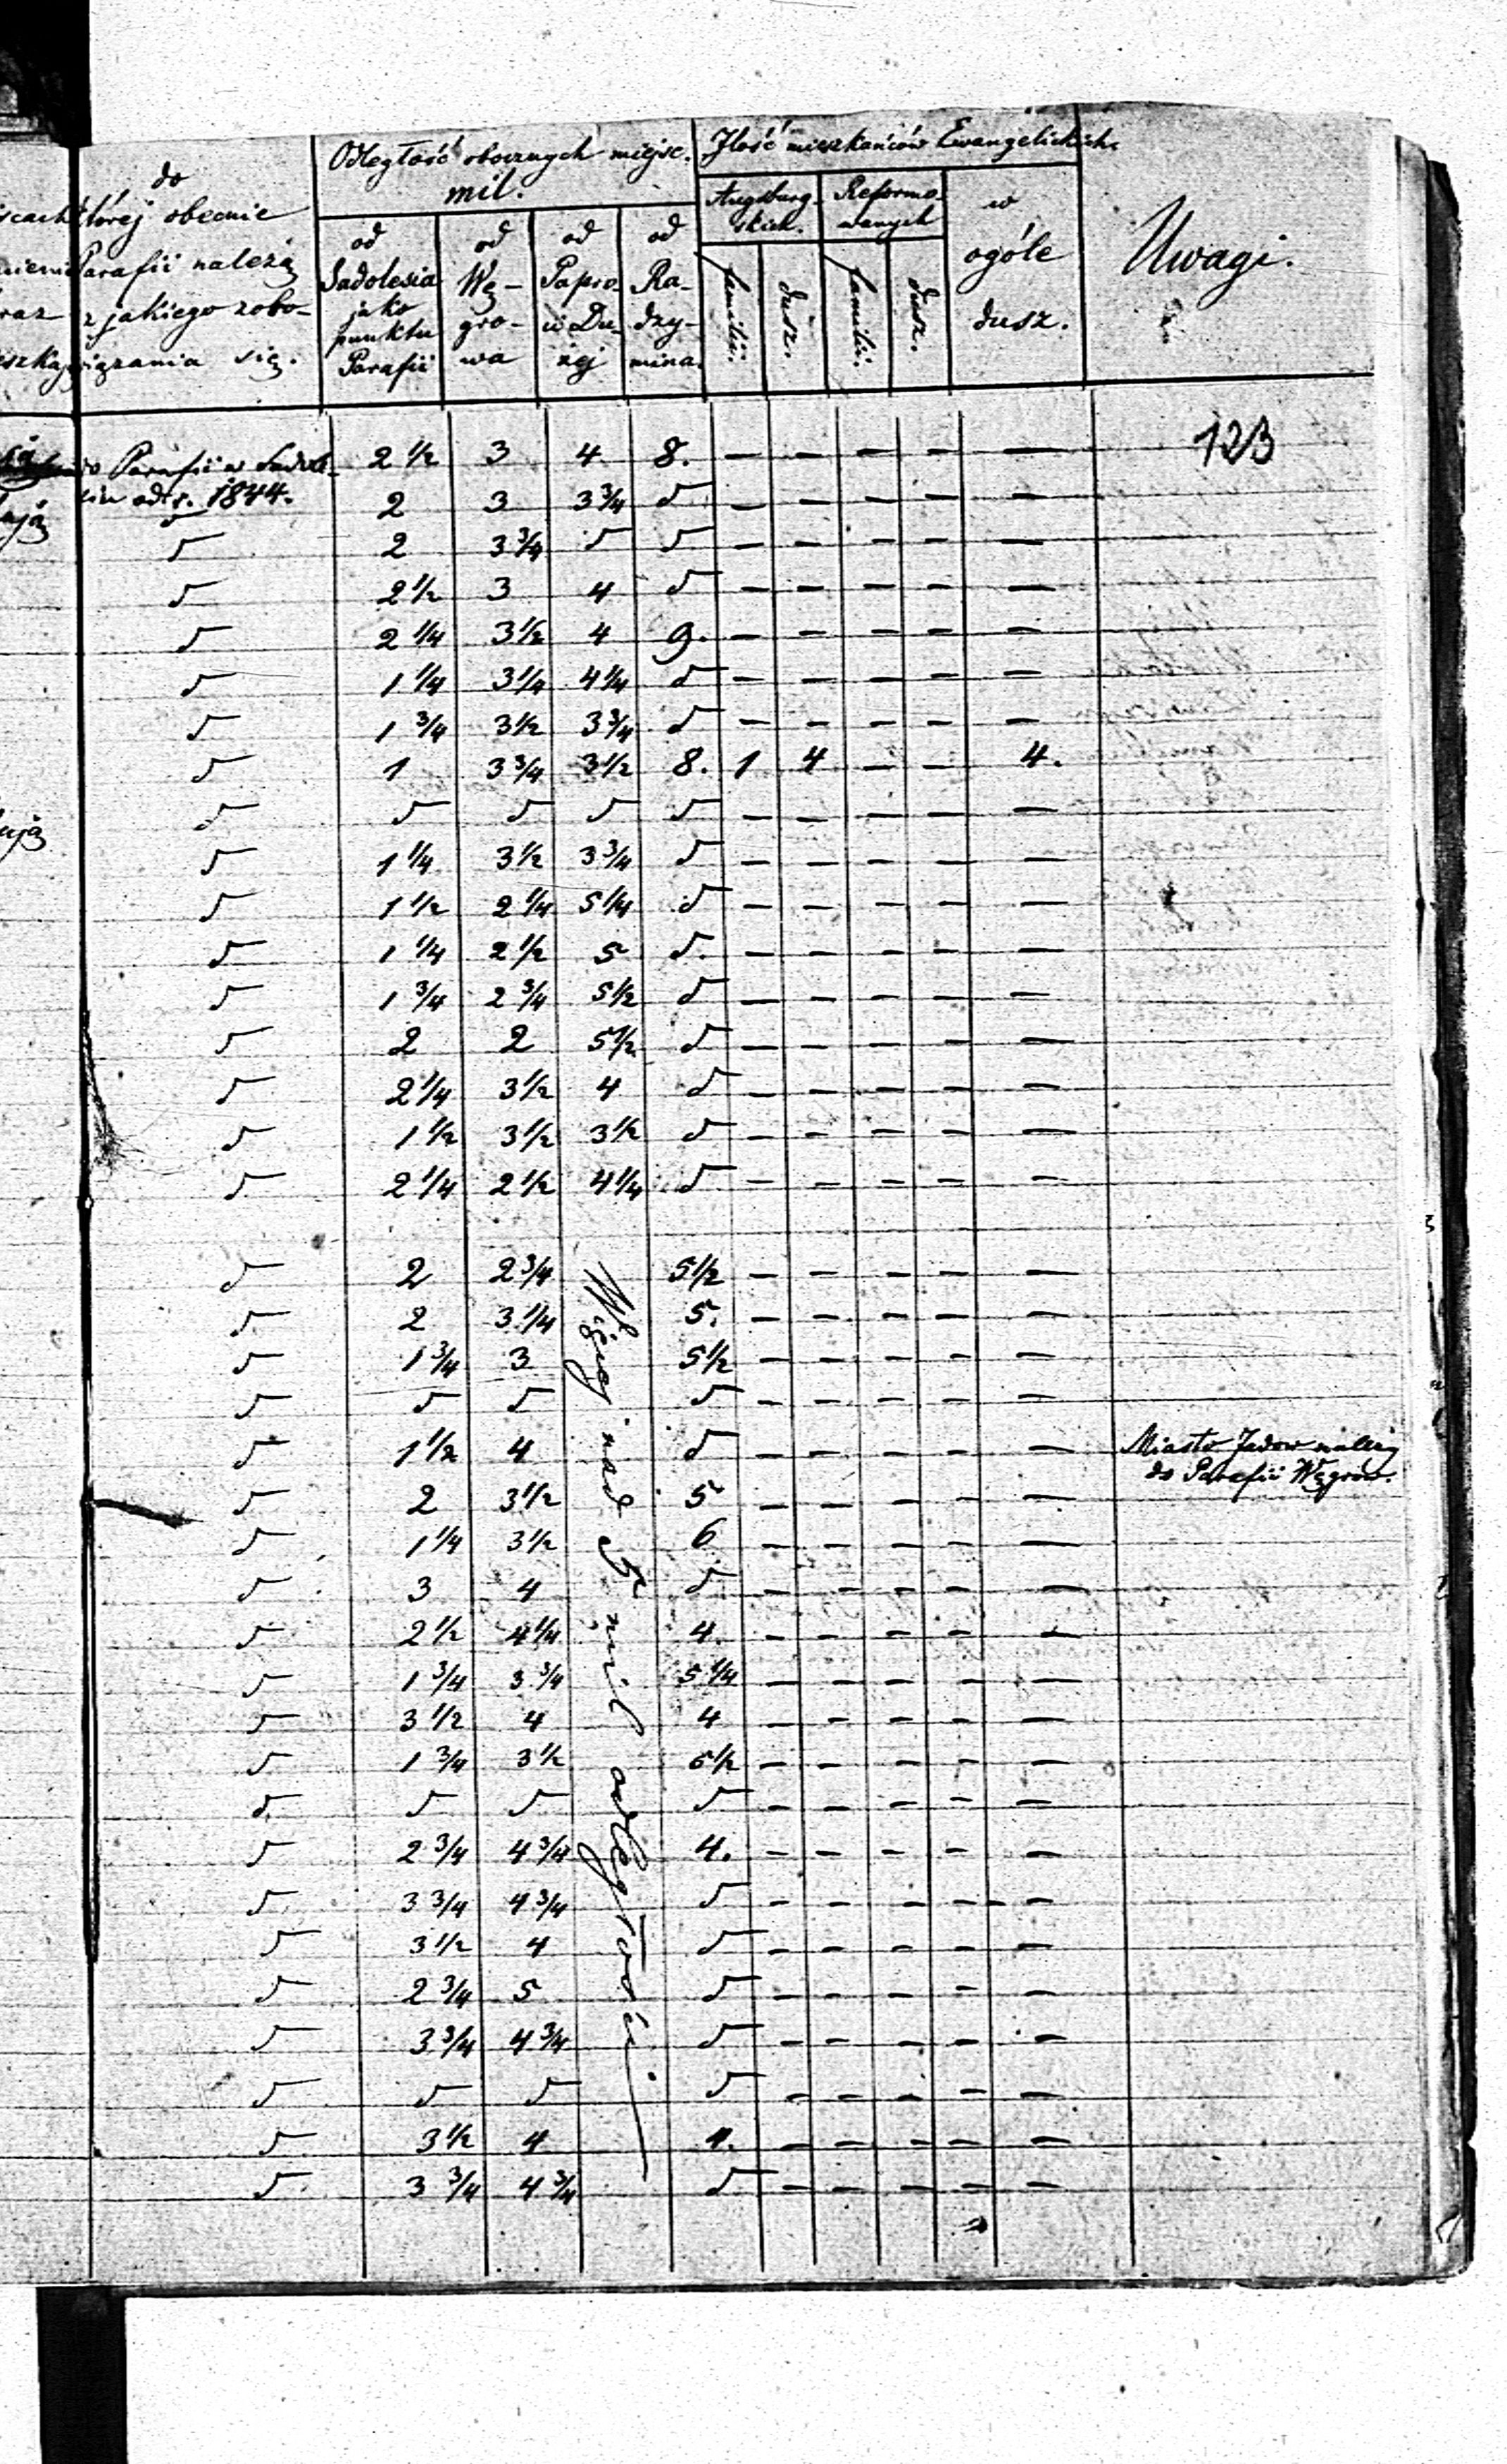 do
której obecnie
Parafii należą
z jakiego zobo-
wiązania się.
Odległość obocznych miejsc.
mil.
od Sadolesia jako punktu Parafii
od Wę-gro-wa
od Papro-ci Du-żej
od Ra-dzy-mina.
Ilość mieszkańców Ewangelickich
Augsburg-skich.
Reformo-wanych
familii. dusz. familii. dusz.
w ogóle dusz.
Uwagi.
123
do Parafii w Sadole-
siu od r. 1844.
2 1/2 3 4 8. — — — — —
2 3 3 3/4 — — — — —
2 3 3/4 — — — — —
2 1/2 3 4 — — — — —
2 1/4 3 1/2 4 9. — — — — —
1 1/4 3 1/4 4 1/4 — — — — —
1 3/4 3 1/2 3 3/4 — — — — —
1 3 3/4 3 1/2 8. 1 4 — — 4.
— — — — —
1 1/4 3 1/2 3 3/4 — — — — —
1 1/2 2 1/4 5 1/4 — — — — —
1 1/4 2 1/2 5 — — — — —
1 3/4 2 3/4 5 1/2 — — — — —
2 2 5 1/2 — — — — —
2 1/4 3 1/2 4 — — — — —
1 1/2 3 1/2 3 1/2 — — — — —
2 1/4 2 1/2 4 1/4 — — — — —
2 2 3/4 5 1/2 — — — — —
2 3 1/4 5. — — — — —
1 3/4 3 5 1/2 — — — — —
— — — — —
1 1/2 4 — — — — — Miasto Jadow należy
do Parafii Węgrów.
2 3 1/2 5 — — — — —
1 1/4 3 1/2 6 — — — — —
3 4 — — — — —
2 1/2 4 1/4 4 — — — — —
1 3/4 3 3/4 5 1/4 — — — — —
3 1/2 4 4 — — — — —
1 3/4 3 1/2 5 1/2 — — — — —
— — — — —
2 3/4 4 3/4 4. — — — — —
3 3/4 4 3/4 — — — — —
3 1/2 4 — — — — —
2 3/4 5 — — — — —
3 3/4 4 3/4 — — — — —
— — — — —
3 1/2 4 4. — — — — —
3 3/4 4 3/4 — — — — —
Więcej nad 5 mil odległości